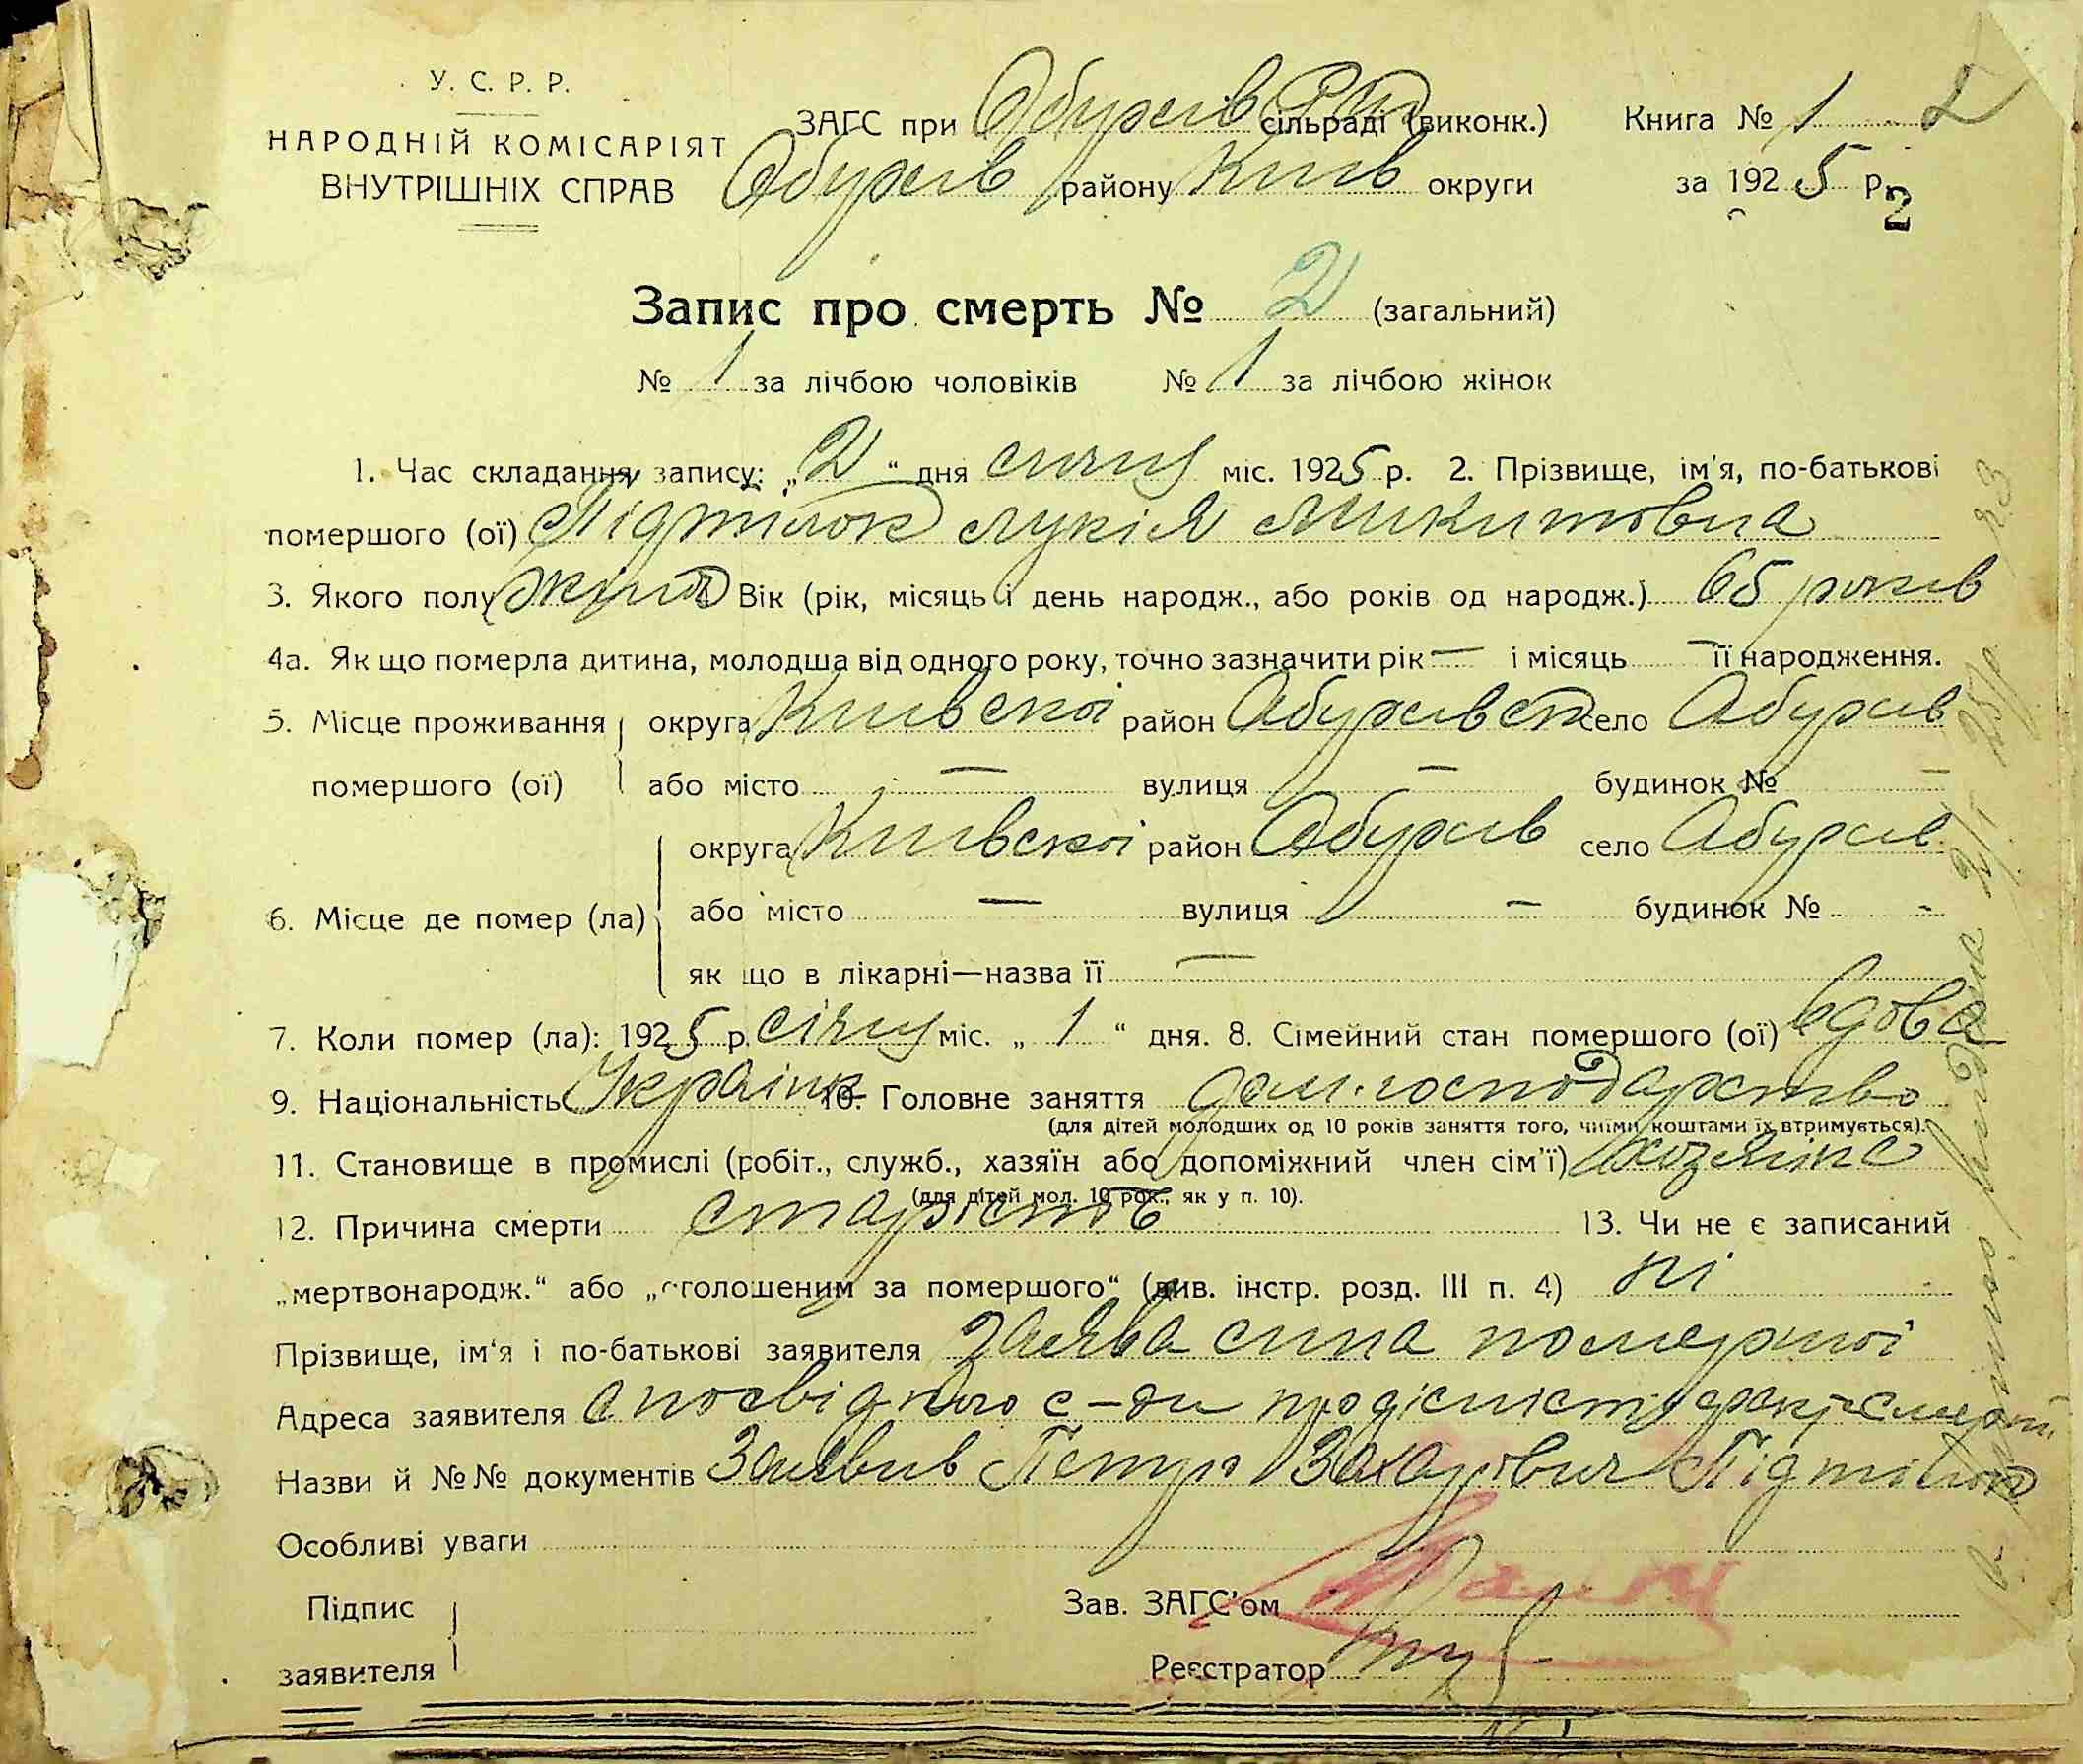 У. С. Р. Р.
НАРОДНІЙ КОМІСАРІЯТ
ВНУТРІШНІХ СПРАВ
ЗАГС при Обухів РИК сільраді (виконк.)
Обухів району Київ округи
Книга № 1 2
за 1925 р.
2
Запис про смерть № 2 (загальний)
№ 1 за лічбою чоловіків № 1 за лічбою жінок
1. Час складання запису: „2“ дня січня міс. 1925 р. 2. Прізвище, ім'я, по-батькові
помершого (ої) Підтілок Лукія Микитовна
3. Якого полу жіноч Вік (рік, місяць і день народж., або років од народж.) 65 років
4а. Як що померла дитина, молодша від одного року, точно зазначити рік — і місяць — її народження.
5. Місце проживання округа Київскої район Обухівск село Обухів
помершого (ої) або місто — вулиця — будинок № —
округа Київскої район Обухів село Обухів
6. Місце де помер (ла) або місто — вулиця — будинок № -
як що в лікарні—назва її —
7. Коли помер (ла): 1925 р. січня міс. „1“ дня. 8. Сімейний стан помершого (ої) вдова
9. Національність Українк 10. Головне заняття дом. господарство
(для дітей молодших од 10 років заняття того, чиїми коштами їх втримується).
11. Становище в промислі (робіт., служб., хазяїн або допоміжний член сім'ї) хозяінс
(для дітей мол. 10 рок., як у п. 10).
12. Причина смерти старість 13. Чи не є записаний
„мертвонародж.“ або „оголошеним за помершого“ (див. інстр. розд. III п. 4) ні
Прізвище, ім'я і по-батькові заявителя Заява сина помершої
Адреса заявителя с-ди про дісність факт смерти
Назви й №№ документів Заявив Петро Захарович Підтілок
Особливі уваги
Підпис
заявителя
Зав. ЗАГС'ом
Реєстратор